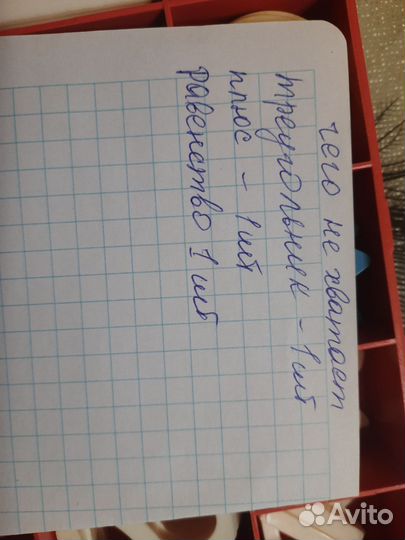 чего не хватает
треугольник - 1 шт
плюс - 1 шт
равенство 1 шт
Avito